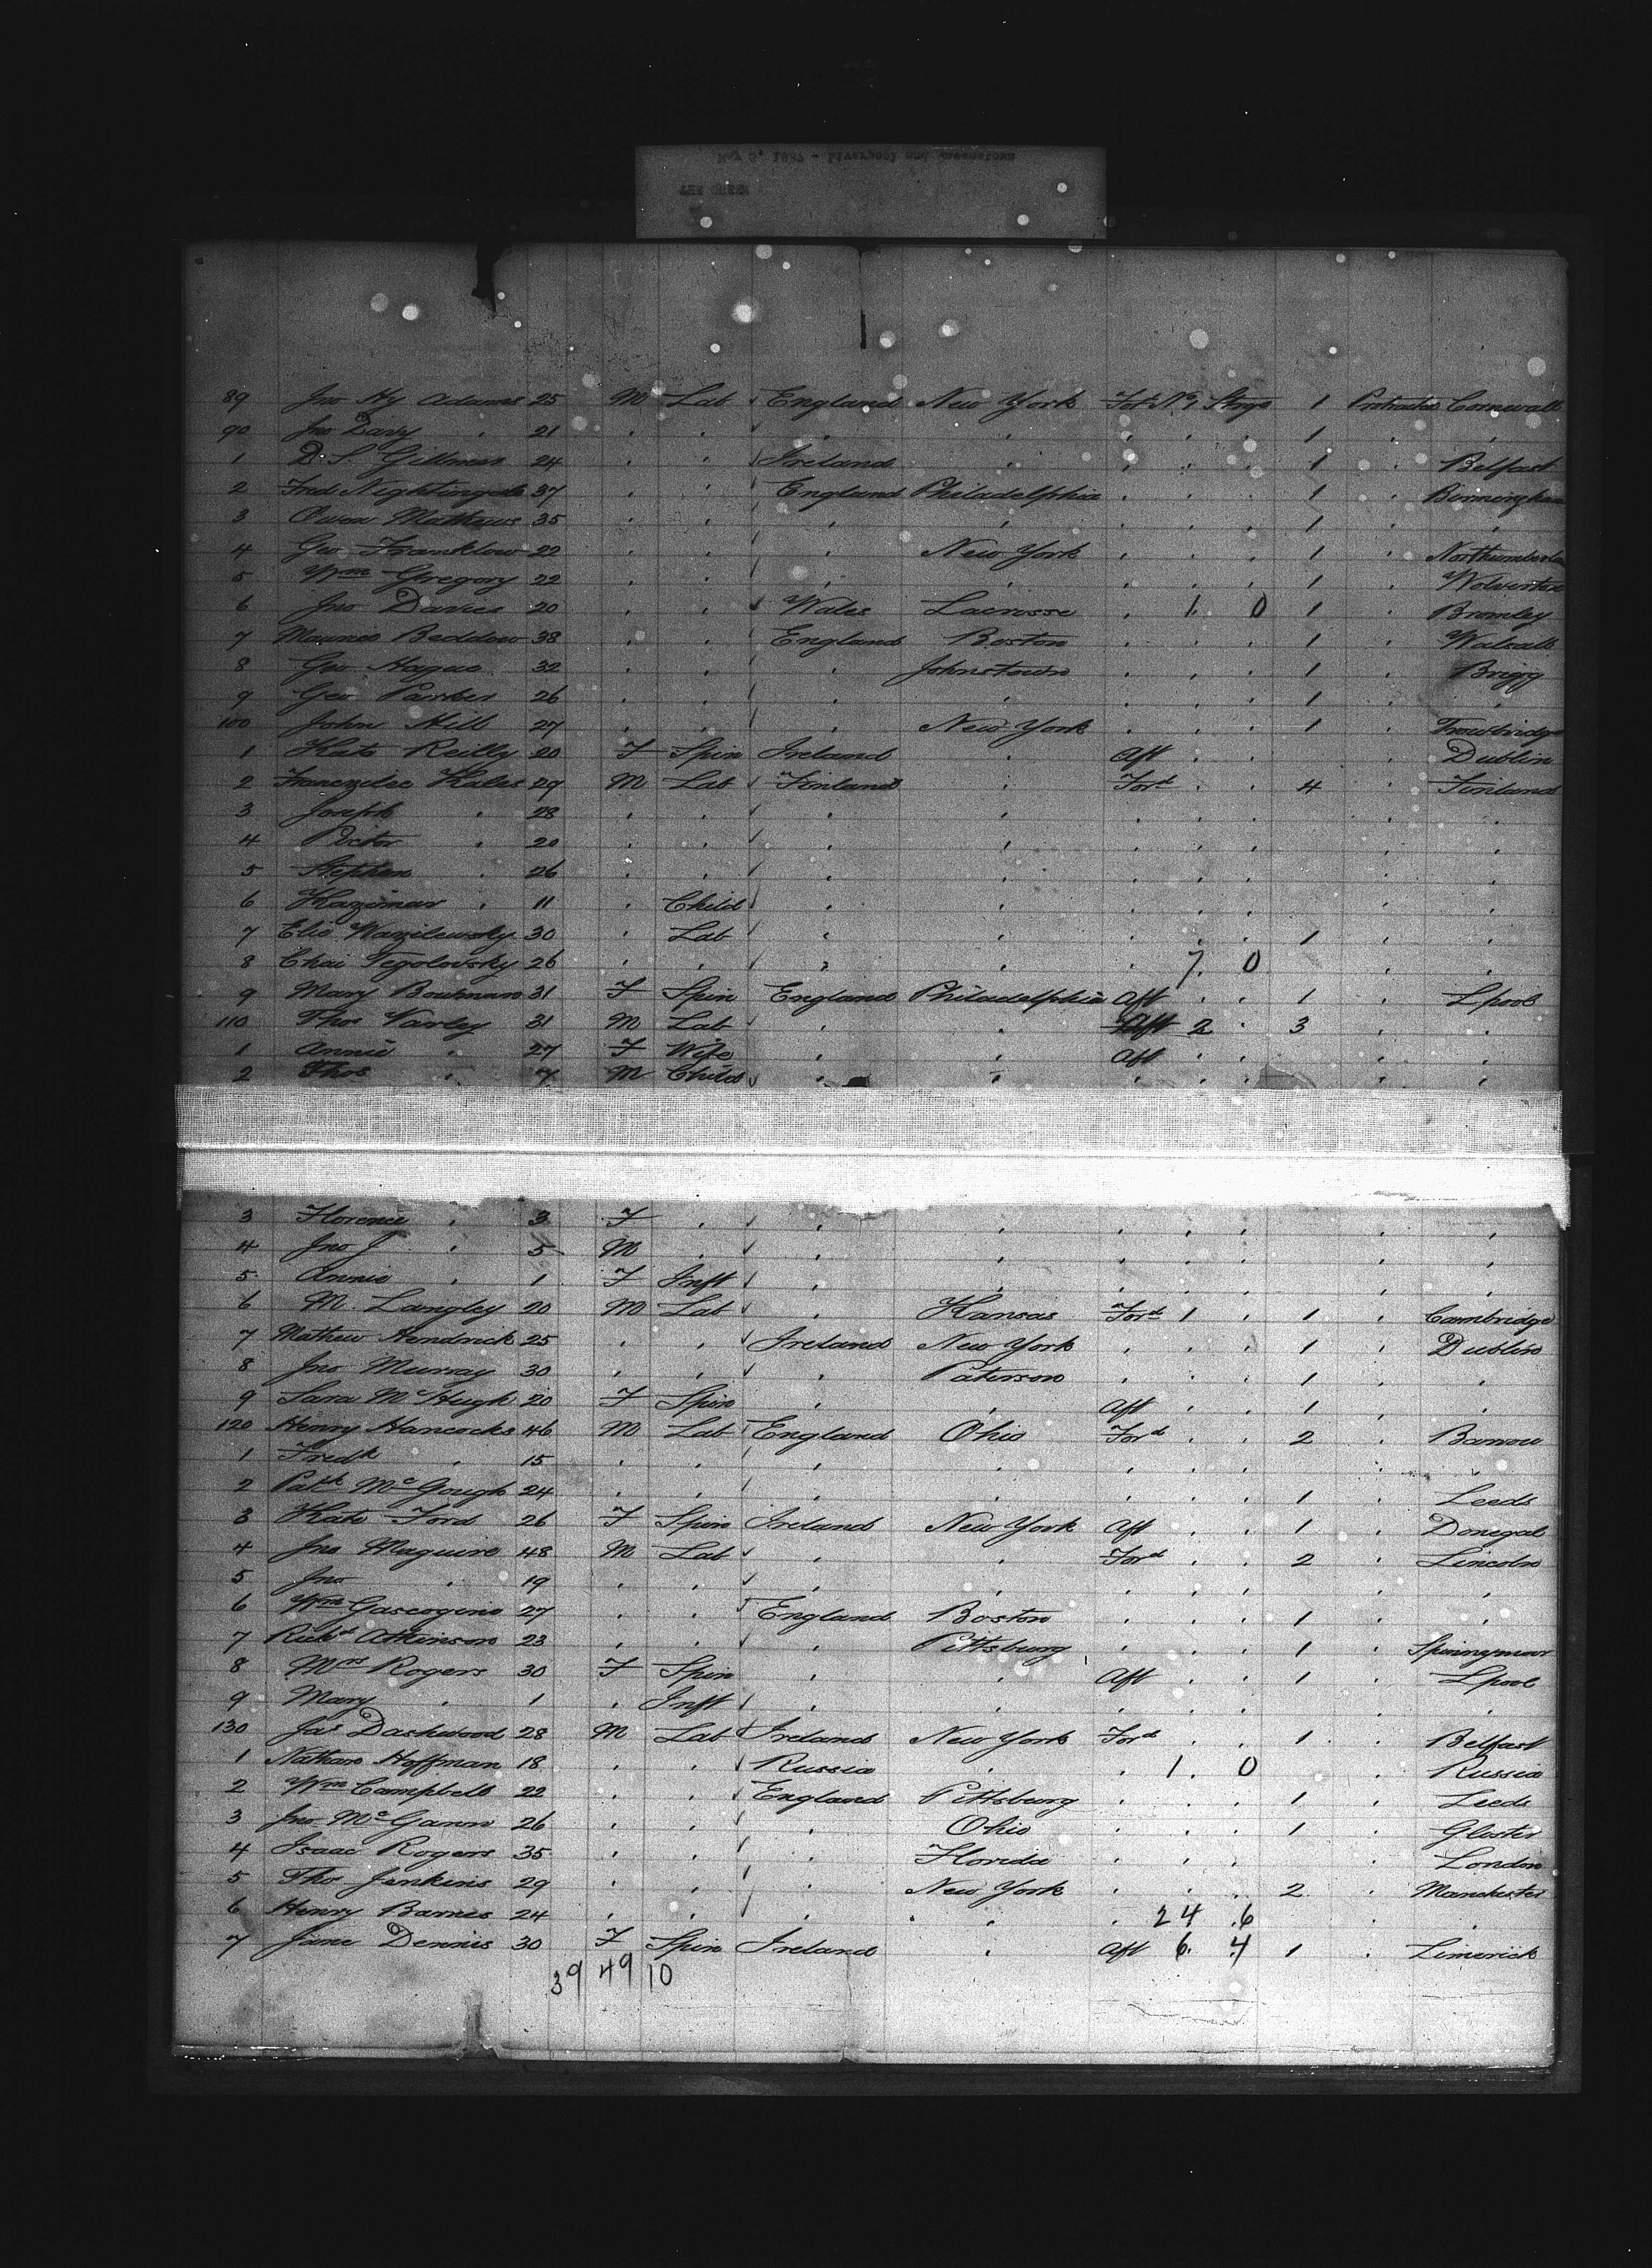 May 5, 1887 - Liverpool and Queenstown
THE QUEEN
89 Jno Hy Adams 25 M Lab England New York For No 1 Strge 1 Protracted Cornwall
90 Jno Davy " 21 " " " " " " " 1 " "
1 D. S. Gillmer 24 " " Ireland " " " " 1 " Belfast
2 Fred Nightingale 37 " " England Philadelphia " " " 1 " Birmingham
3 Owen Mathews 35 " " " " " " " 1 " "
4 Geo Franklow 22 " " " New York " " " 1 " Northumberla
5 Wm Gregory 22 " " " " " " " 1 " Wolverton
6 Jno Davies 20 " " Wales Lacrosse " 1 0 1 " Bromley
7 Maurice Beddow 38 " " England Boston " " " 1 " Walsall
8 Geo Hague 32 " " " Johnstown " " " 1 " Brigg
9 Geo Parker 26 " " " " " " " 1 " "
100 John Hill 27 " " " New York " " " 1 " Trowbridge
1 Kate Reilly 20 F Spin Ireland " Aft " " Dublin
2 Kales 29 M Lab Finland " Ford " " 4 " Finland
3 Joseph " 28 " " " " " " " " "
4 Victor " 20 " " " " " " " " "
5 Stephen " 26 " " " " " " " " "
6 Kazimar " 11 " Child " " " " " " "
7 Elio Wazilewsky 30 " Lab " " " " " 1 " "
8 Chai Tegolovsky 26 " " " " " 7. 0 " "
9 Mary Bowman 31 F Spin England Philadelphia Aft " " 1 " Lpool
110 Thos Varley 31 M Lab " " Aft 2 " 3 " "
1 Annie " 27 F Wife " " Aft " " " "
2 Thos " 7 M Child " " " " " " "
3 Florence " 3 F " " " " " " " "
4 Jno J. " 5 M " " " " " " " "
5 Annie " 1 F Inft " " " " " " "
6 M. Langley 20 M Lab " Kansas Ford 1 " 1 " Cambridge
7 Mathew Hendrick 25 " " Ireland New York " " " 1 " Dublin
8 Jno Murray 30 " " " Paterson " " " 1 " "
9 Sara McHugh 20 F Spin " " Aft " " 1 " "
120 Henry Hancocks 46 M Lab England Ohio Ford " " 2 " Barrow
1 Fredk " 15 " " " " " " " " "
2 Patk McGough 24 " " " " " " " 1 " Leeds
3 Kate Ford 26 F Spin Ireland New York Aft " " 1 " Donegal
4 Jno Maguire 48 M Lab " " Ford " " 2 " Lincoln
5 Jno " 19 " " " " " " " " "
6 Wm Gascogine 27 " " England Boston " " " 1 " "
7 Richd Atkinson 23 " " " Pittsburg " " " 1 " Spinnymoor
8 Mrs Rogers 30 F Spin " " Aft " " 1 " Lpool
9 Mary " 1 " Inft " " " " " " "
130 Jas Dashwood 28 M Lab Ireland New York Ford " " 1 " Belfast
1 Nathan Hoffman 18 " " Russia " " 1. 0 Russia
2 Wm Campbell 22 " " England Pittsburg " " " 1 " Leeds
3 Jno McGann 26 " " " Ohio " " " 1 " Gloster
4 Isaac Rogers 35 " " " Florida " " " " London
5 Tho Jenkins 29 " " " New York " " " 2 " Manchester
6 Henry Barnes 24 " " " " " 24 6 " "
7 Jane Dennis 30 F Spin Ireland " Aft 6. 4 1 " Limerick
39 49 10